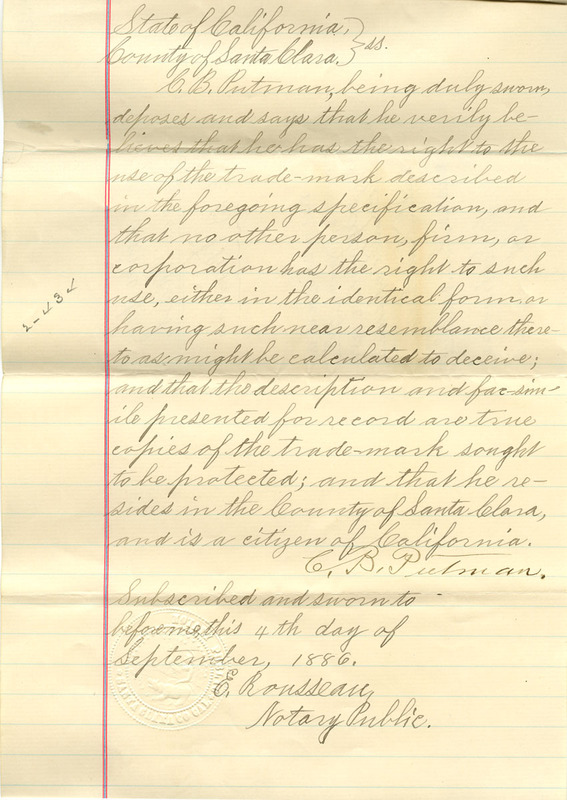 State of California,
County of Santa Clara. } ss.
C. B. Putman, being duly sworn,
deposes and says that he verily be-
lieves that he has the right to the
use of the trade-mark described
in the foregoing specification, and
that no other person, firm, or
corporation has the right to such
use, either in the identical form or
having such near resemblance there-
to as might be calculated to deceive;
and that the description and fac-sim-
ile presented for record are true
copies of the trade-mark sought
to be protected; and that he re-
sides in the County of Santa Clara,
and is a citizen of California.
C. B. Putman.
Subscribed and sworn to
before me, this 4th day of
September, 1886.
E. Rousseau,
Notary Public.